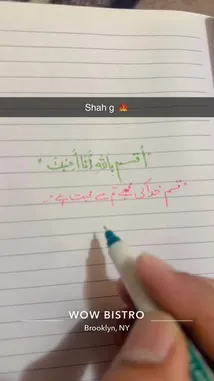 Shah g 🔥
"أقسم بالله أنا أحبك"
"قسم خدا کی مجھے تم سے محبت ہے"
WOW BISTRO
Brooklyn, NY